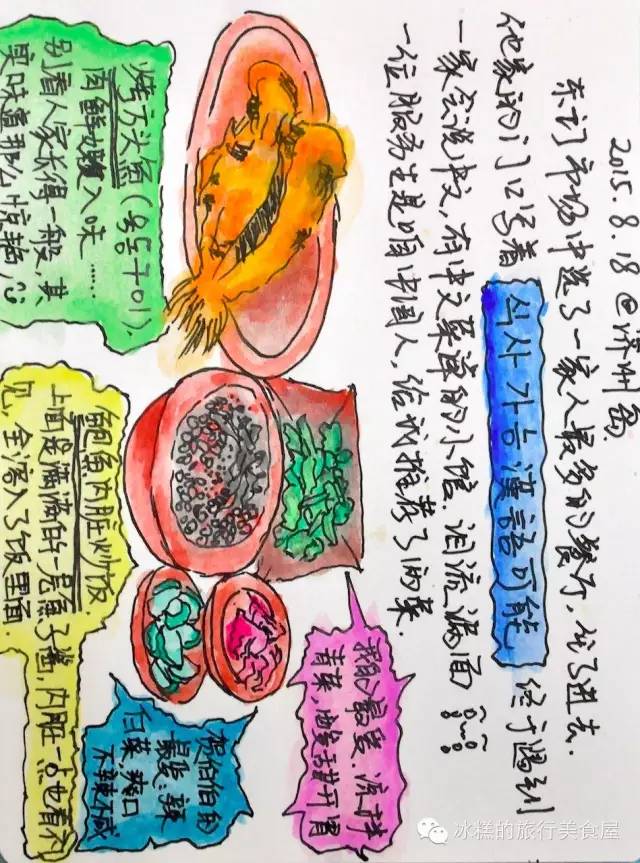 2015.8.18@济州岛
东门市场中选了一家人最多的餐厅,坐了进去.
他家的门口写着 식사가능 漢語可能 终于遇到
一家会说中文,有中文菜单的小馆.泪流满面
一位服务生是咱中国人,给我推荐了两菜.
烤方头鱼(옥돔구이),
肉鲜嫩入味......
别看人家长得一般,其
实味道那么惊艳,
鲍鱼内脏炒饭
上面是满满的一层鱼子酱,内脏一点也看不
见,全溶入了饭里面.
我的最爱.凉拌
青菜,酸甜开胃
杨伯伯的
最爱:辣
白菜,爽口
不辣不咸
冰糕的旅行美食屋